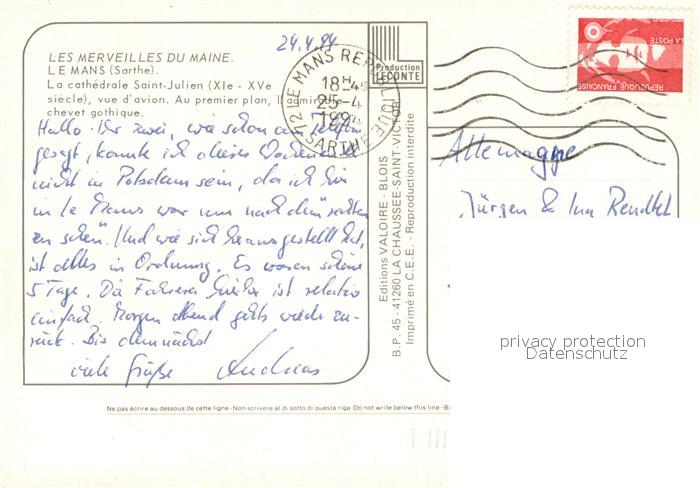 24.4.94
LES MERVEILLES DU MAINE.
LE MANS (Sarthe).
La cathédrale Saint-Julien (XIe - XVe
siècle), vue d'avion. Au premier plan, l'admirable
chevet gothique.
Hallo Ihr zwei, wie schon am Telefon
gesagt, konnte ich dieses Wochenende
nicht in Potsdam sein, da ich hier
in Le Mans war um nach dem rechten
zu sehen. Und wie sich herausgestellt hat,
ist alles in Ordnung. Es waren schöne
5 Tage. Die ist relativ
einfach. Morgen abend gehts wieder zu-
rück. Bis demnächst
viele Grüße Andreas
Production
LECONTE
72 LE MANS REPUBLIQUE
18H45
25-4
1994
SARTHE
LA POSTE
REPUBLIQUE FRANÇAISE
Editions VALOIRE - BLOIS
B.P. 45 - 41260 LA CHAUSSEE-SAINT-VICTOR
Imprimé en C.E.E. - Reproduction interdite
Allemagne
Jürgen & Ina
privacy protection
Datenschutz
Ne pas écrire au dessous de cette ligne - Non scrivere al di sotto di questa riga Do not write below this line - B